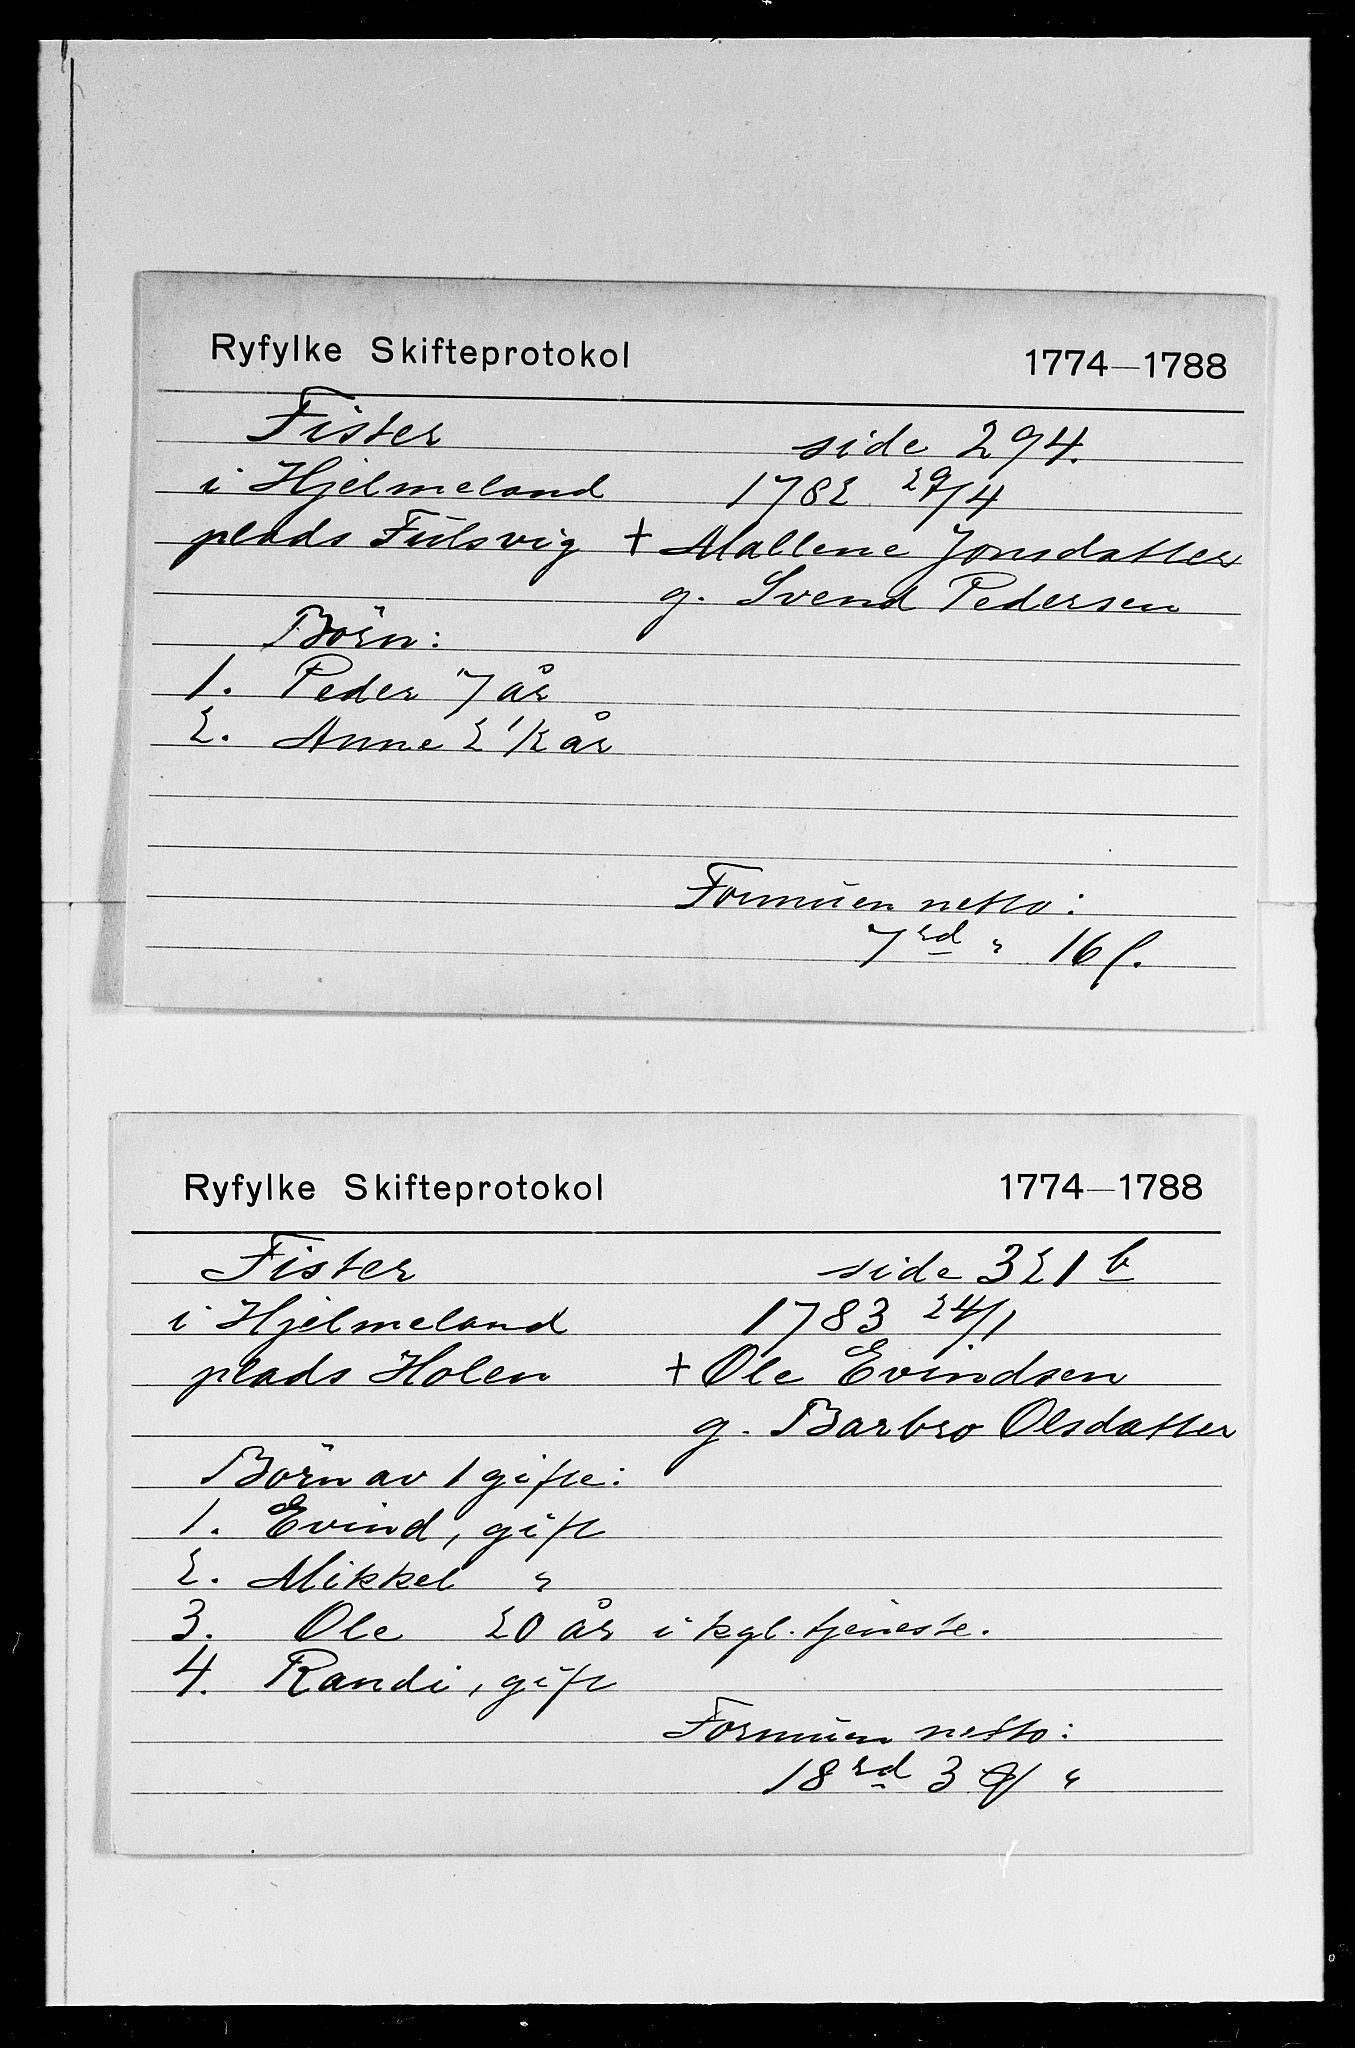 Ryfylke Skifteprotokol 1774—1788
Fister side 294.
i Hjelmeland 1782 29/4
plads Fülsvig + Mallene Jonsdatter
g. Svend Pedersen
Börn:
1. Peder 7 år
2. Anne 2 1/2 år
Formüen netto:
7 rd " 16 s.
Ryfylke Skifteprotokol 1774—1788
Fister side 321 b
i Hjelmeland 1783 24/1
plads Holen + Ole Evindsen
g. Barbro Olsdatter
Börn av 1 gifte:
1. Evind, gift
2. Mikkel "
3. Ole 20 år i kgl. tjeneste.
4. Randi, gift
Formüen netto:
18 rd 3 "